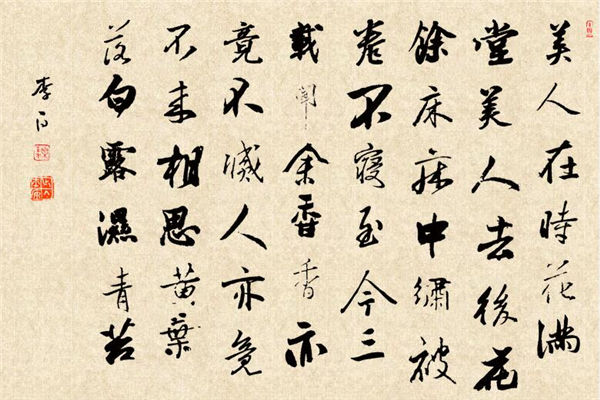 美人在時花滿
堂美人去後花
餘床床中繡被
卷不寢至今三
載聞余香香亦
竟不滅人亦竟
不来相思黃葉
落白露濕青苔
李白